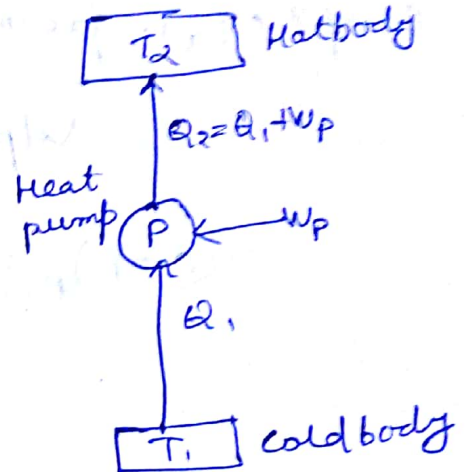 T₂ Hotbody
Q₂=Q₁+Wp
Heat
pump
P
Wp
Q₁
T₁ Coldbody